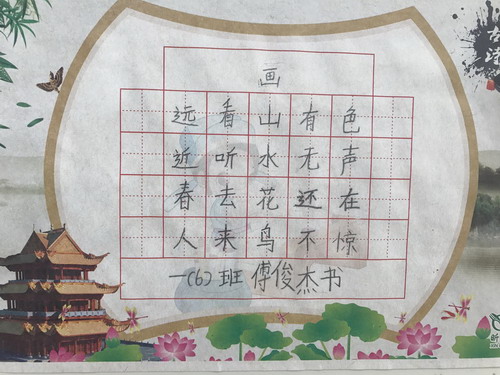 画
远看山有色
近听水无声
春去花还在
人来鸟不惊
一(6)班 傅俊杰书